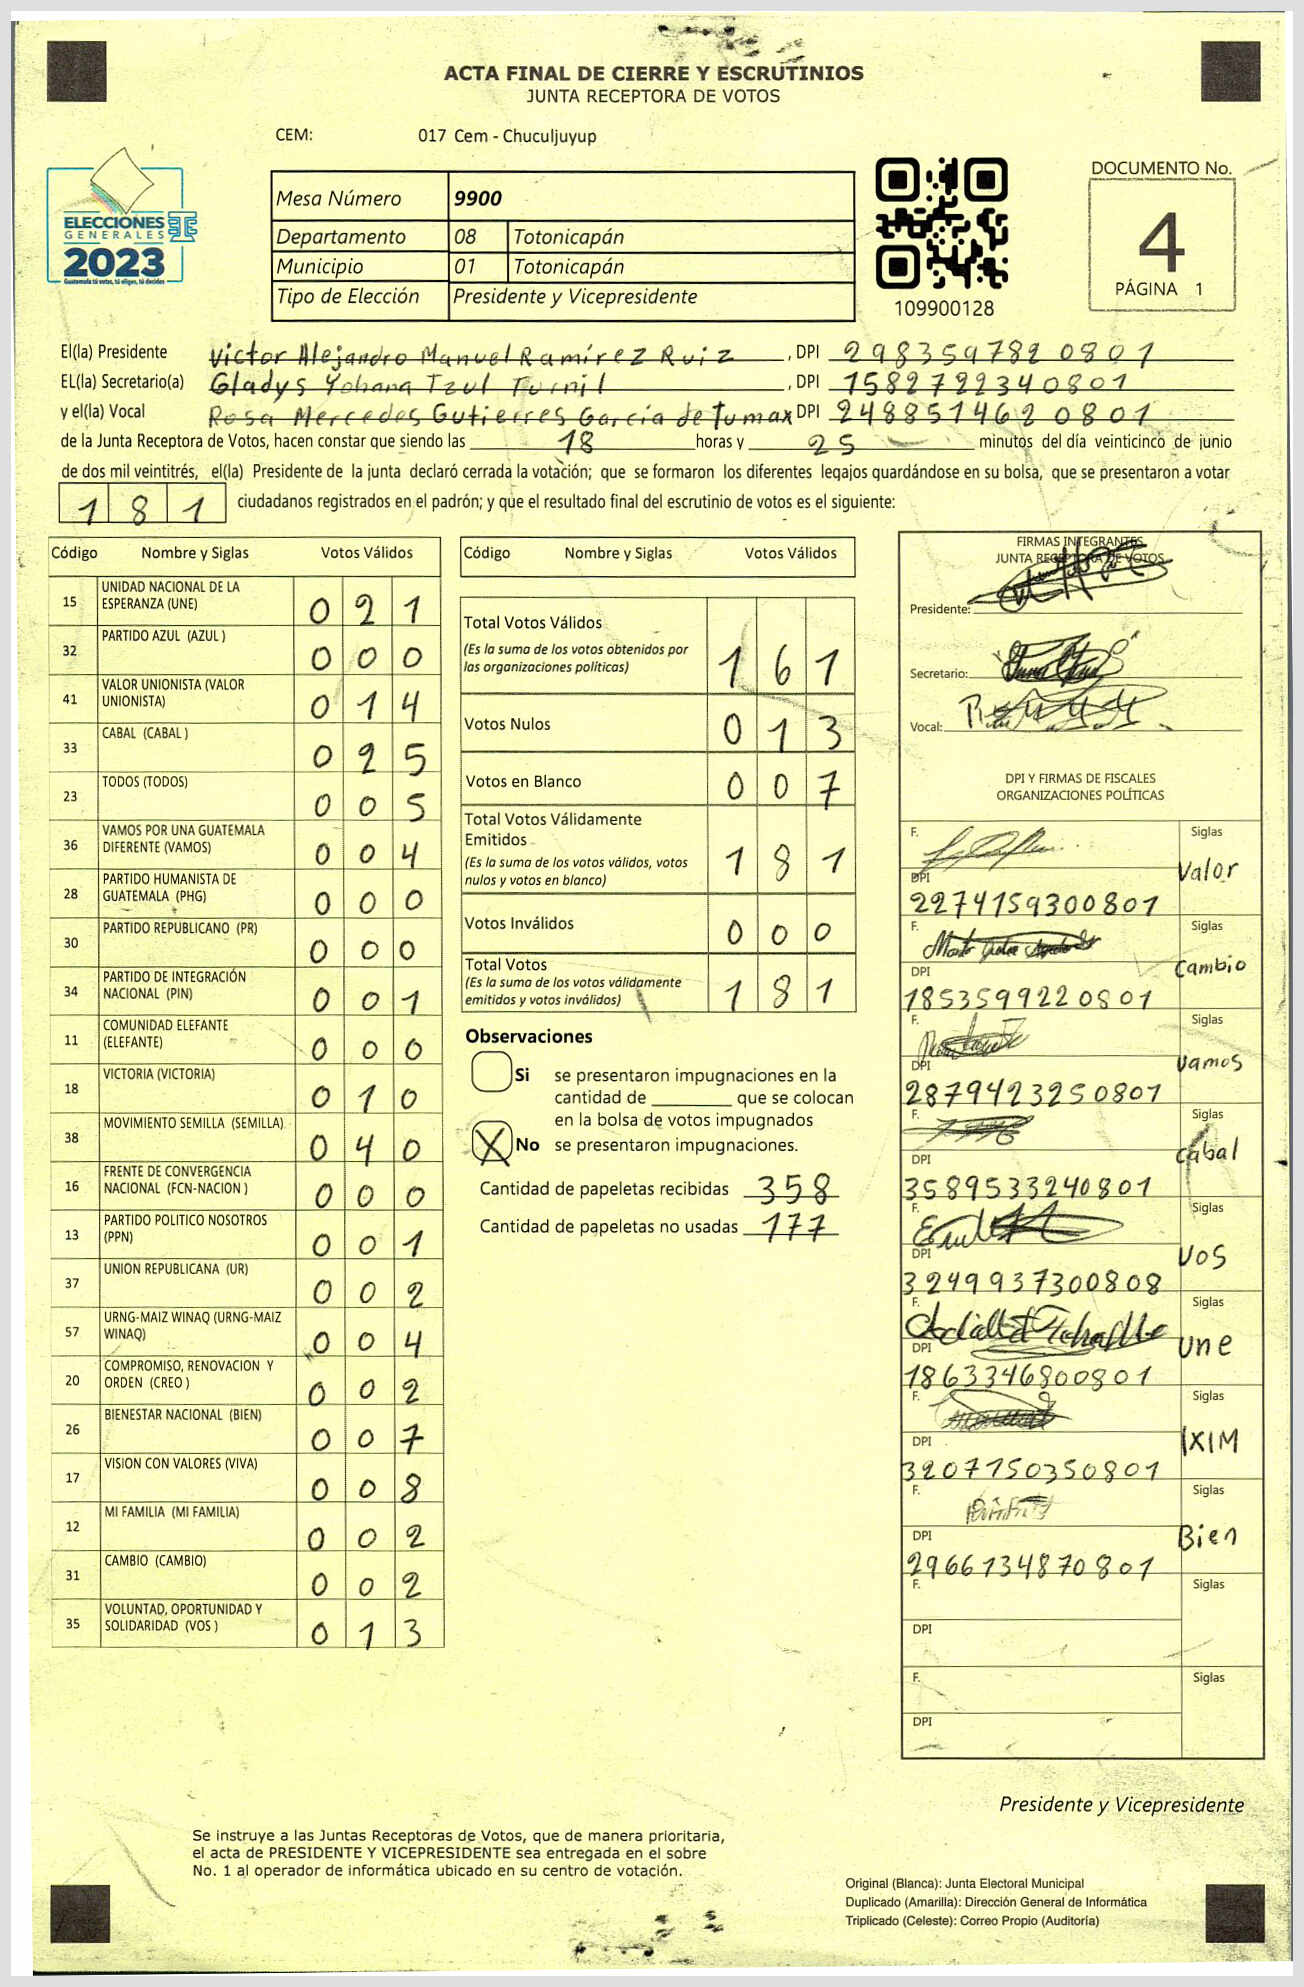 ACTA FINAL DE CIERRE Y ESCRUTINIOS
JUNTA RECEPTORA DE VOTOS
CEM: 017 Cem - Chuculjuyup
ELECCIONES
GENERALES
2023
Guatemala tú votas, tú eliges, tú decides
Mesa Número 9900
Departamento 08 Totonicapán
Municipio 01 Totonicapán
Tipo de Elección Presidente y Vicepresidente
109900128
DOCUMENTO No.
4
PÁGINA 1
El(la) Presidente Victor Alejandro Manuel Ramírez Ruiz, DPI 298359782 0801
EL(la) Secretario(a) Gladys Yohana Tzul Turnil, DPI 1582722340801
y el(la) Vocal Rosa Mercedes Gutierres García de Tumax DPI 248851462 0801
de la Junta Receptora de Votos, hacen constar que siendo las 18 horas y 25 minutos del día veinticinco de junio
de dos mil veintitrés, el(la) Presidente de la junta declaró cerrada la votación; que se formaron los diferentes legajos guardándose en su bolsa, que se presentaron a votar
181 ciudadanos registrados en el padrón; y que el resultado final del escrutinio de votos es el siguiente:
Código Nombre y Siglas Votos Válidos
15 UNIDAD NACIONAL DE LA
ESPERANZA (UNE) 021
32 PARTIDO AZUL (AZUL ) 000
41 VALOR UNIONISTA (VALOR
UNIONISTA) 014
33 CABAL (CABAL ) 025
23 TODOS (TODOS) 005
36 VAMOS POR UNA GUATEMALA
DIFERENTE (VAMOS) 004
28 PARTIDO HUMANISTA DE
GUATEMALA (PHG) 000
30 PARTIDO REPUBLICANO (PR) 000
34 PARTIDO DE INTEGRACIÓN
NACIONAL (PIN) 001
11 COMUNIDAD ELEFANTE
(ELEFANTE) 000
18 VICTORIA (VICTORIA) 010
38 MOVIMIENTO SEMILLA (SEMILLA) 040
16 FRENTE DE CONVERGENCIA
NACIONAL (FCN-NACION ) 000
13 PARTIDO POLITICO NOSOTROS
(PPN) 001
37 UNION REPUBLICANA (UR) 002
57 URNG-MAIZ WINAQ (URNG-MAIZ
WINAQ) 004
20 COMPROMISO, RENOVACION Y
ORDEN (CREO ) 002
26 BIENESTAR NACIONAL (BIEN) 007
17 VISION CON VALORES (VIVA) 008
12 MI FAMILIA (MI FAMILIA) 002
31 CAMBIO (CAMBIO) 002
35 VOLUNTAD, OPORTUNIDAD Y
SOLIDARIDAD (VOS ) 013
Código Nombre y Siglas Votos Válidos
Total Votos Válidos
(Es la suma de los votos obtenidos por
las organizaciones políticas) 161
Votos Nulos 013
Votos en Blanco 007
Total Votos Válidamente
Emitidos
(Es la suma de los votos válidos, votos
nulos y votos en blanco) 181
Votos Inválidos 000
Total Votos
(Es la suma de los votos válidamente
emitidos y votos inválidos) 181
Observaciones
Si se presentaron impugnaciones en la
cantidad de ________ que se colocan
en la bolsa de votos impugnados
X No se presentaron impugnaciones.
Cantidad de papeletas recibidas 358
Cantidad de papeletas no usadas 177
FIRMAS INTEGRANTES
JUNTA RECEPTORA DE VOTOS
Presidente:
Secretario:
Vocal:
DPI Y FIRMAS DE FISCALES
ORGANIZACIONES POLÍTICAS
F. Siglas
Valor
DPI
2274159300801
F. Siglas
cambio
DPI
1853599220801
F. Siglas
vamos
DPI
2879423250801
F. Siglas
cabal
DPI
3589533240801
F. Siglas
VOS
DPI
3249937300808
F. Siglas
une
DPI
1863346800801
F. Siglas
IXIM
DPI
3207150350801
F. Siglas
Bien
DPI
2966134870801
F. Siglas
DPI
F. Siglas
DPI
Presidente y Vicepresidente
Se instruye a las Juntas Receptoras de Votos, que de manera prioritaria,
el acta de PRESIDENTE Y VICEPRESIDENTE sea entregada en el sobre
No. 1 al operador de informática ubicado en su centro de votación.
Original (Blanca): Junta Electoral Municipal
Duplicado (Amarilla): Dirección General de Informática
Triplicado (Celeste): Correo Propio (Auditoría)